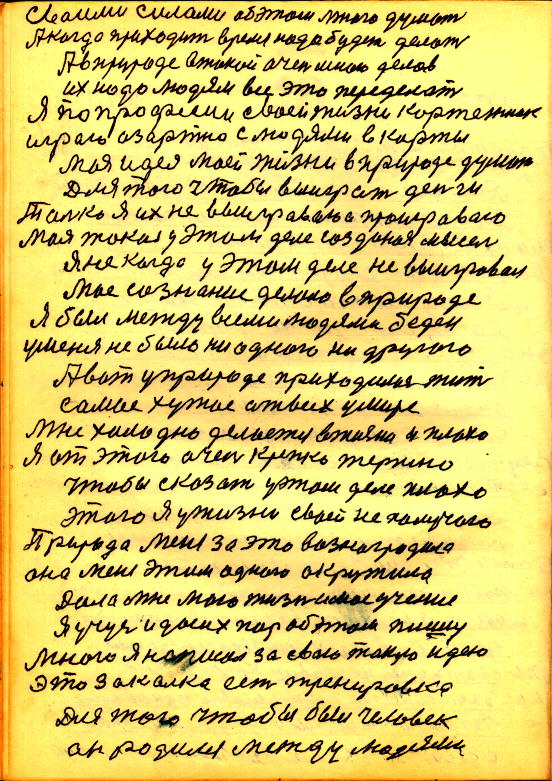 Своими силами об этом много думат
А когда приходит время надо будет делат
А в природе в такой очен много делов
их надо людям все это переделат
Я по професии своей жизни картежник
играю азартно с людями в карты
Мая идея маей жизни в природе думат
Для того чтобы выиграт денги
Толко Я их не выигравал а проигравал
Мая такая у этом деле созданая мысел
Я не когда у этом деле не выигравал
Мое сознание делало в природе
Я был между всеми людями беден
у меня не было ни одного ни другого
А вот у природе приходилос жит
самое хужае от всех у мире
Мне холодно делается и плохо
Я от этого очен крепко терпю
чтобы сказат у этом деле плохо
этого Я у жизни своей не получаю
Природа меня за это вознагродила
она меня этим одного окружила
Дала мне мою жизн мое учение
Я учус и до сих пор об этом пишу
Много Я написал за свою такую идею
Это закалка ест тренировка
Для того чтобы был человек
он родился между людями